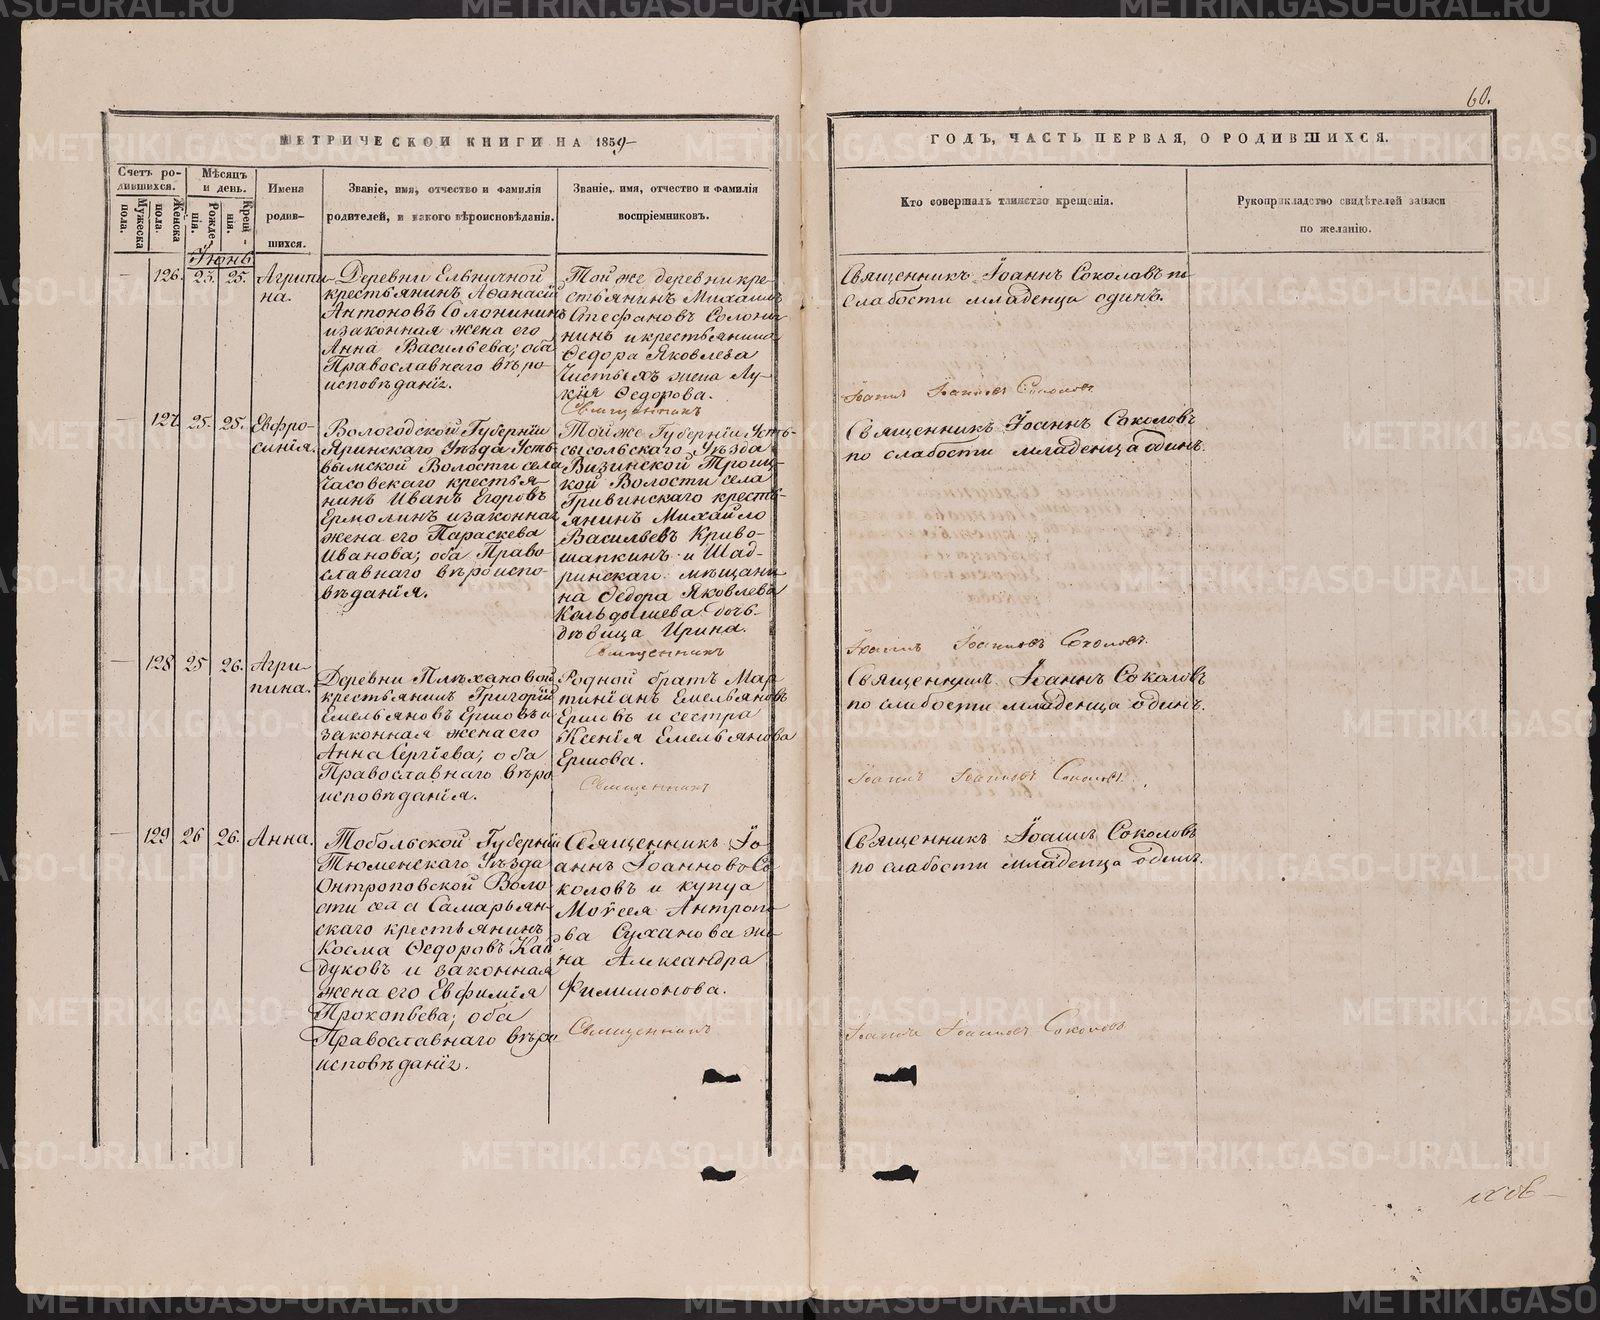 60.
МЕТРИЧЕСКОЙ КНИГИ НА 1859
ГОДЪ, ЧАСТЬ ПЕРВАЯ, О РОДИВШИХСЯ.
Счетъ ро-
дившихся.
Мужеска
пола.
Женска
пола.
Мѣсяцъ
и день.
Рожде-
нія.
Креще-
нія.
Имена
родив-
шихся.
Званіе, имя, отчество и фамилія
родителей, и какого вѣроисповѣданія.
Званіе, имя, отчество и фамилія
воспріемниковъ.
Кто совершалъ таинство крещенія.
Рукоприкладство свидѣтелей записи
по желанію.
Іюнь
126. 23. 25.
Агрипи-
на.
Деревни Ельничной
крестьянинъ Аѳанасій
Антоновъ Солонининъ
и законная жена его
Анна Васильева; оба
Православнаго вѣро-
исповѣданія.
Той же деревни кре-
стьянинъ Михаилъ
Стефановъ Солони-
нинъ и крестьянина
Ѳедора Яковлева
Чистыхъ жена Лу-
кія Ѳедорова.
Священникъ Іоаннъ Соколовъ по
слабости младенца одинъ.
Священникъ Іоаннъ Іоанновъ Соколовъ
127. 25. 25.
Евфро-
синія.
Вологодской Губерніи
Яринскаго Уѣзда Усть-
вымской Волости села
Часовскаго крестья-
нинъ Иванъ Егоровъ
Ермолинъ и законная
жена его Параскева
Иванова; оба Право-
славнаго вѣроиспо-
вѣданія.
Той же Губерніи Усть-
сысольскаго Уѣзда
Визинской Троиц-
кой Волости села
Гривинскаго кресть-
янинъ Михайло
Васильевъ Криво-
шапкинъ и Шад-
ринскаго мѣщани-
на Ѳедора Яковлева
Кальдышева дочь
дѣвица Ирина.
Священникъ Іоаннъ Соколовъ
по слабости младенца одинъ.
Священникъ Іоаннъ Іоанновъ Соколовъ.
128 25 26.
Агри-
пина.
Деревни Плѣхановой
крестьянинъ Григорій
Емельяновъ Ершовъ и
законная жена его
Анна Сергіева; оба
Православнаго вѣро-
исповѣданія.
Родной братъ Мар-
тиніанъ Емельяновъ
Ершовъ и сестра
Ксенія Емельянова
Ершова.
Священникъ Іоаннъ Соколовъ
по слабости младенца одинъ.
Священникъ Іоаннъ Іоанновъ Соколовъ.
129 26 26.
Анна.
Тобольской Губерніи
Тюменскаго Уѣзда
Онтроповской Воло-
сти села Самарьян-
скаго крестьянинъ
Косма Ѳедоровъ Кай-
дуковъ и законная
жена его Евфимія
Прокопьева; оба
Православнаго вѣро-
исповѣданія.
Священникъ Іо-
аннъ Іоанновъ Со-
коловъ и купца
Моѵсея Антропо-
ва Суханова же-
на Александра
Филимонова.
Священникъ Іоаннъ Соколовъ
по слабости младенца одинъ.
Священникъ Іоаннъ Іоанновъ Соколовъ
METRIKI.GASO-URAL.RU